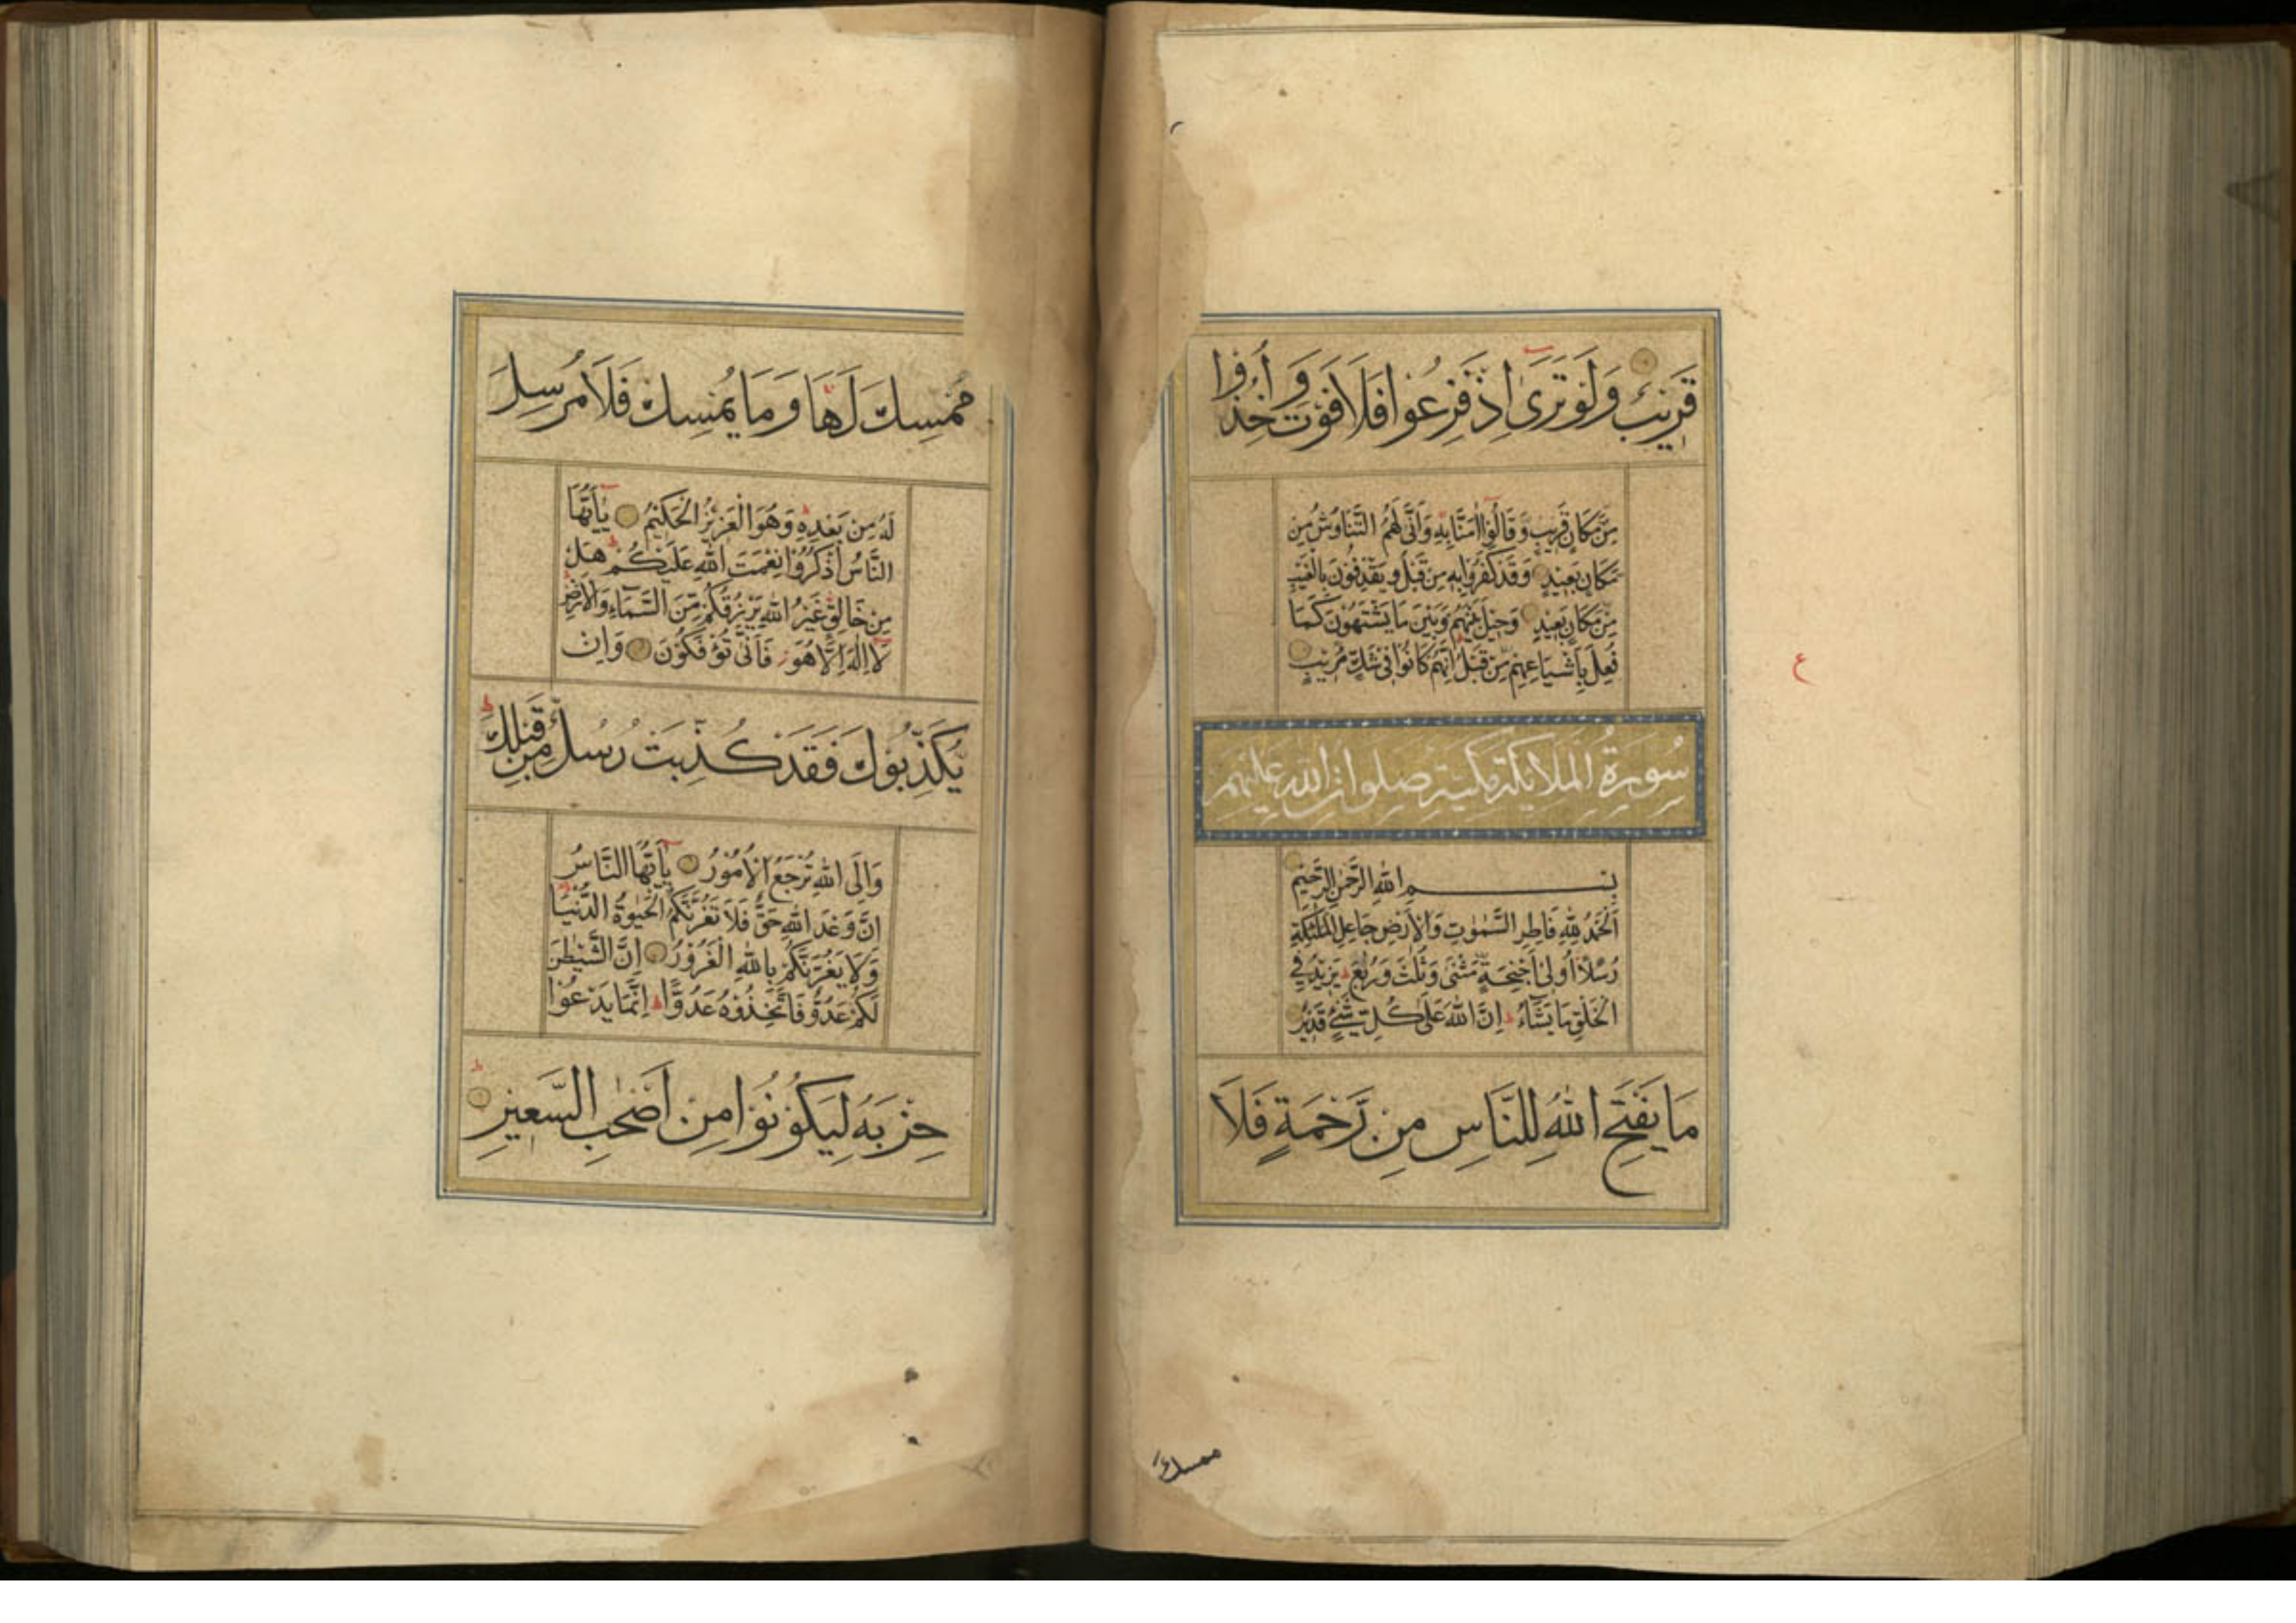 قَرِيبٌ وَلَوْ تَرَىٰ اِذْ فَزِعُوا فَلَا فَوْتَ وَاُخِذُوا
مِنْ مَكَانٍ قَرِيبٍ وَقَالُوا اٰمَنَّا بِهِ وَاَنّٰى لَهُمُ التَّنَاوُشُ مِنْ
مَكَانٍ بَعِيدٍ وَقَدْ كَفَرُوا بِهِ مِنْ قَبْلُ وَيَقْذِفُونَ بِالْغَيْبِ
مِنْ مَكَانٍ بَعِيدٍ وَحِيلَ بَيْنَهُمْ وَبَيْنَ مَا يَشْتَهُونَ كَمَا
فُعِلَ بِاَشْيَاعِهِمْ مِنْ قَبْلُ اِنَّهُمْ كَانُوا فِي شَكٍّ مُرِيبٍ
ع
سُورَةُ الْمَلَائِكَةِ مَكِّيَّة صلوات الله عليهم
بِسْمِ اللهِ الرَّحْمٰنِ الرَّحِيمِ
اَلْحَمْدُ لِلّٰهِ فَاطِرِ السَّمٰوٰتِ وَالْاَرْضِ جَاعِلِ الْمَلٰئِكَةِ
رُسُلًا اُولِي اَجْنِحَةٍ مَثْنٰى وَثُلٰثَ وَرُبٰعَ ط يَزِيدُ فِي
الْخَلْقِ مَا يَشَاءُ ط اِنَّ اللهَ عَلٰى كُلِّ شَيْءٍ قَدِيرٌ
مَا يَفْتَحِ اللهُ لِلنَّاسِ مِنْ رَحْمَةٍ فَلَا
ممسك
مُمْسِكَ لَهَا وَمَا يُمْسِكْ فَلَا مُرْسِلَ
لَهُ مِنْ بَعْدِهِ ط وَهُوَ الْعَزِيزُ الْحَكِيمُ يٰاَيُّهَا
النَّاسُ اذْكُرُوا نِعْمَتَ اللهِ عَلَيْكُمْ ط هَلْ
مِنْ خَالِقٍ غَيْرُ اللهِ يَرْزُقُكُمْ مِنَ السَّمَاءِ وَالْاَرْضِ ط
لَا اِلٰهَ اِلَّا هُوَ ز فَاَنّٰى تُؤْفَكُونَ وَاِنْ
يُكَذِّبُوكَ فَقَدْ كُذِّبَتْ رُسُلٌ مِنْ قَبْلِكَ ط
وَاِلَى اللهِ تُرْجَعُ الْاُمُورُ يٰاَيُّهَا النَّاسُ
اِنَّ وَعْدَ اللهِ حَقٌّ فَلَا تَغُرَّنَّكُمُ الْحَيٰوةُ الدُّنْيَا
وَلَا يَغُرَّنَّكُمْ بِاللهِ الْغَرُورُ اِنَّ الشَّيْطٰنَ
لَكُمْ عَدُوٌّ فَاتَّخِذُوهُ عَدُوًّا ط اِنَّمَا يَدْعُوا
حِزْبَهُ لِيَكُونُوا مِنْ اَصْحٰبِ السَّعِيرِ ط